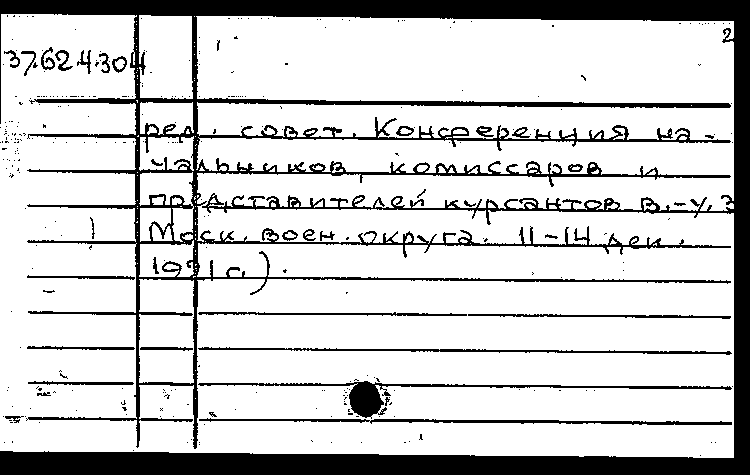 2
37.62.4.304
ред. совет. Конференция на-
чальников, комиссаров и
представителей курсантов в.-у. з
Моск. воен. округа. 11-14 дек.
1921 г.).